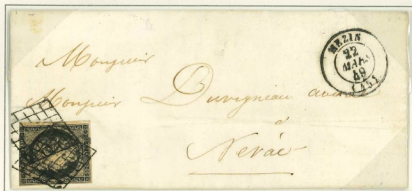 MEZIN
22
MARS
49
(45)
Monsieur
Monsieur Duvigneau avoué
à
Nérac